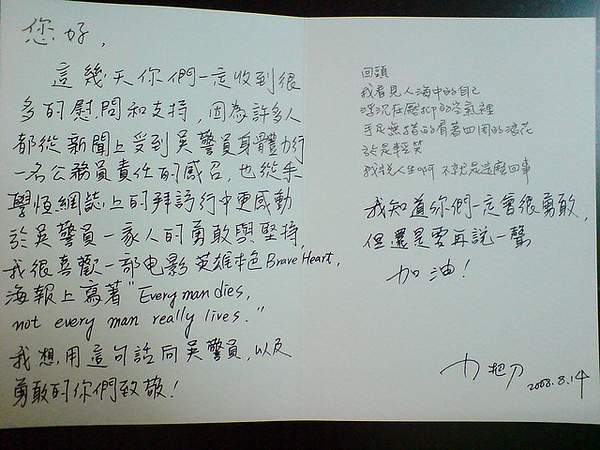 您好,
這幾天你們一定收到很
多的慰問和支持,因為許多人
都從新聞上受到吳警員身體力行
一名公務員責任的感召,也從手
學恆網誌上的拜訪行中更感動
於吳警員一家人的勇敢與堅持,
我很喜歡一部电影英雄本色Brave Heart,
海報上寫著"Every man dies,
not every man really lives."
我想,用這句話向吳警員,以及
勇敢的你們致敬!
回頭
我看見人海中的自己
浮沉在壓抑的空氣裡
手足無措的看著四周的浪花
於是輕笑
我說人生啊 不就是這麼回事
我知道你們一定會很勇敢,
但還是要再說一聲
加油!
九把刀
2008.8.14